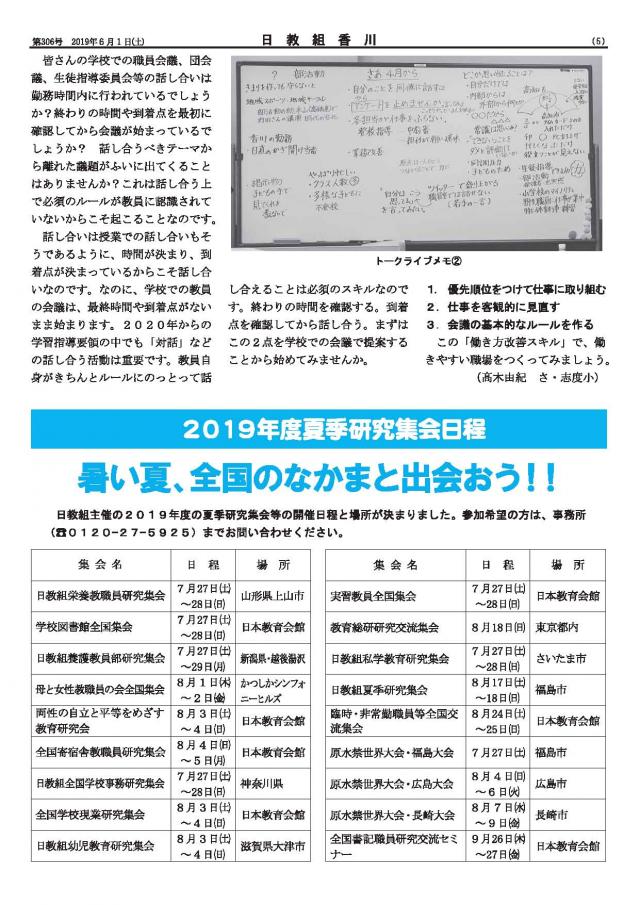 第306号 2019年6月1日(土)
日教組香川
(5)
皆さんの学校での職員会議、団会
議、生徒指導委員会等の話し合いは
勤務時間内に行われているでしょう
か？終わりの時間や到着点を最初に
確認してから会議が始まっているで
しょうか？ 話し合うべきテーマか
ら離れた議題がふいに出てくること
はありませんか？これは話し合う上
で必須のルールが教員に認識されて
いないからこそ起こることなのです。
話し合いは授業での話し合いもそ
うであるように、時間が決まり、到
着点が決まっているからこそ話し合
いなのです。なのに、学校での教員
の会議は、最終時間や到着点がない
まま始まります。２０２０年からの
学習指導要領の中でも「対話」など
の話し合う活動は重要です。教員自
身がきちんとルールにのっとって話
さあ４月から
香川の勤務
トークライブメモ②
し合えることは必須のスキルなので
す。終わりの時間を確認する。到着
点を確認してから話し合う。まずは
この２点を学校での会議で提案する
ことから始めてみませんか。
１．優先順位をつけて仕事に取り組む
２．仕事を客観的に見直す
３．会議の基本的なルールを作る
この「働き方改善スキル」で、働
きやすい職場をつくってみましょう。
（高木由紀 さ・志度小）
２０１９年度夏季研究集会日程
暑い夏、全国のなかまと出会おう！！
日教組主催の２０１９年度の夏季研究集会等の開催日程と場所が決まりました。参加希望の方は、事務所
（☎０１２０－２７－５９２５）までお問い合わせください。
集会名 日程 場所
日教組栄養教職員研究集会 7月27日(土)～28日(日) 山形県上山市
学校図書館全国集会 7月27日(土)～28日(日) 日本教育会館
日教組養護教員部研究集会 7月27日(土)～29日(月) 新潟県・越後湯沢
母と女性教職員の会全国集会 8月1日(木)～2日(金) かつしかシンフォニーヒルズ
両性の自立と平等をめざす教育研究会 8月3日(土)～4日(日) 日本教育会館
全国寄宿舎教職員研究集会 8月4日(日)～5日(月) 日本教育会館
日教組全国学校事務研究集会 7月27日(土)～28日(日) 神奈川県
全国学校現業研究集会 8月3日(土)～4日(日) 日本教育会館
日教組幼児教育研究集会 8月3日(土)～4日(日) 滋賀県大津市
集会名 日程 場所
実習教員全国集会 7月27日(土)～28日(日) 日本教育会館
教育総研研究交流集会 8月18日(日) 東京都内
日教組私学教育研究集会 7月27日(土)～28日(日) さいたま市
日教組夏季研究集会 8月17日(土)～18日(日) 福島市
臨時・非常勤職員等全国交流集会 8月24日(土)～25日(日) 日本教育会館
原水禁世界大会・福島大会 7月27日(土) 福島市
原水禁世界大会・広島大会 8月4日(日)～6日(火) 広島市
原水禁世界大会・長崎大会 8月7日(水)～9日(金) 長崎市
全国書記職員研究交流セミナー 9月26日(木)～27日(金) 日本教育会館